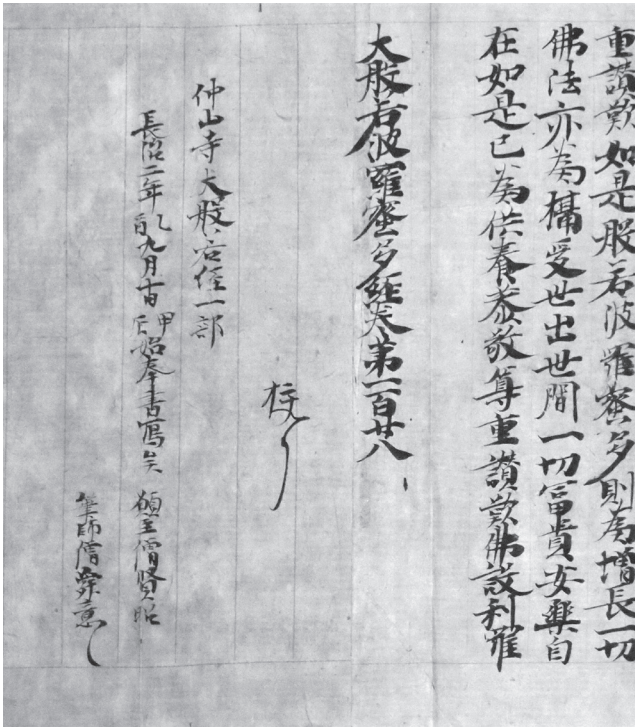 重讃歎如是般若波羅蜜多則為增長一切
佛法亦為攝受世出世間一切冨貴安樂自
在如是已為供養恭敬尊重讃歎佛設利羅
大般若波羅蜜多經卷第一百廿八
仲山寺大般若經一部
長治二年乙酉九月十日甲辰始奉書寫矣 願主僧賢昭
筆師僧意